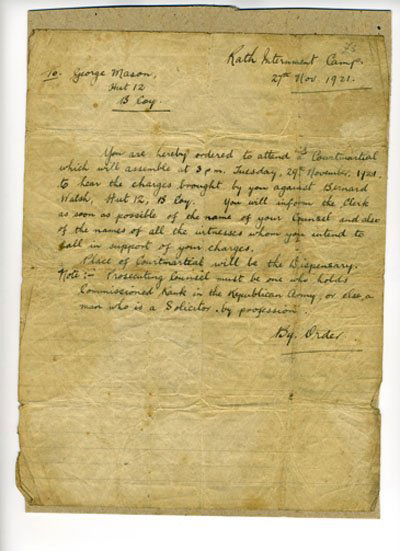 Rath Internment Camp.
27th Nov. 1921.
To. George Mason,
Hut 12
B Coy.
You are hereby ordered to attend a Courtmartial
which will assemble at 3 p.m. Tuesday, 29th November, 1921.
to hear the charges brought by you against Bernard
Walsh, Hut 12, B Coy. You will inform the Clerk
as soon as possible of the name of your Counsel and also
of the names of all the witnesses whom you intend to
call in support of your charges.
Place of Courtmartial will be the Dispensary.
Note:- Prosecuting Counsel must be one who holds
Commissioned Rank in the Republican Army, or else a
man who is a Solicitor by profession.
By. Order